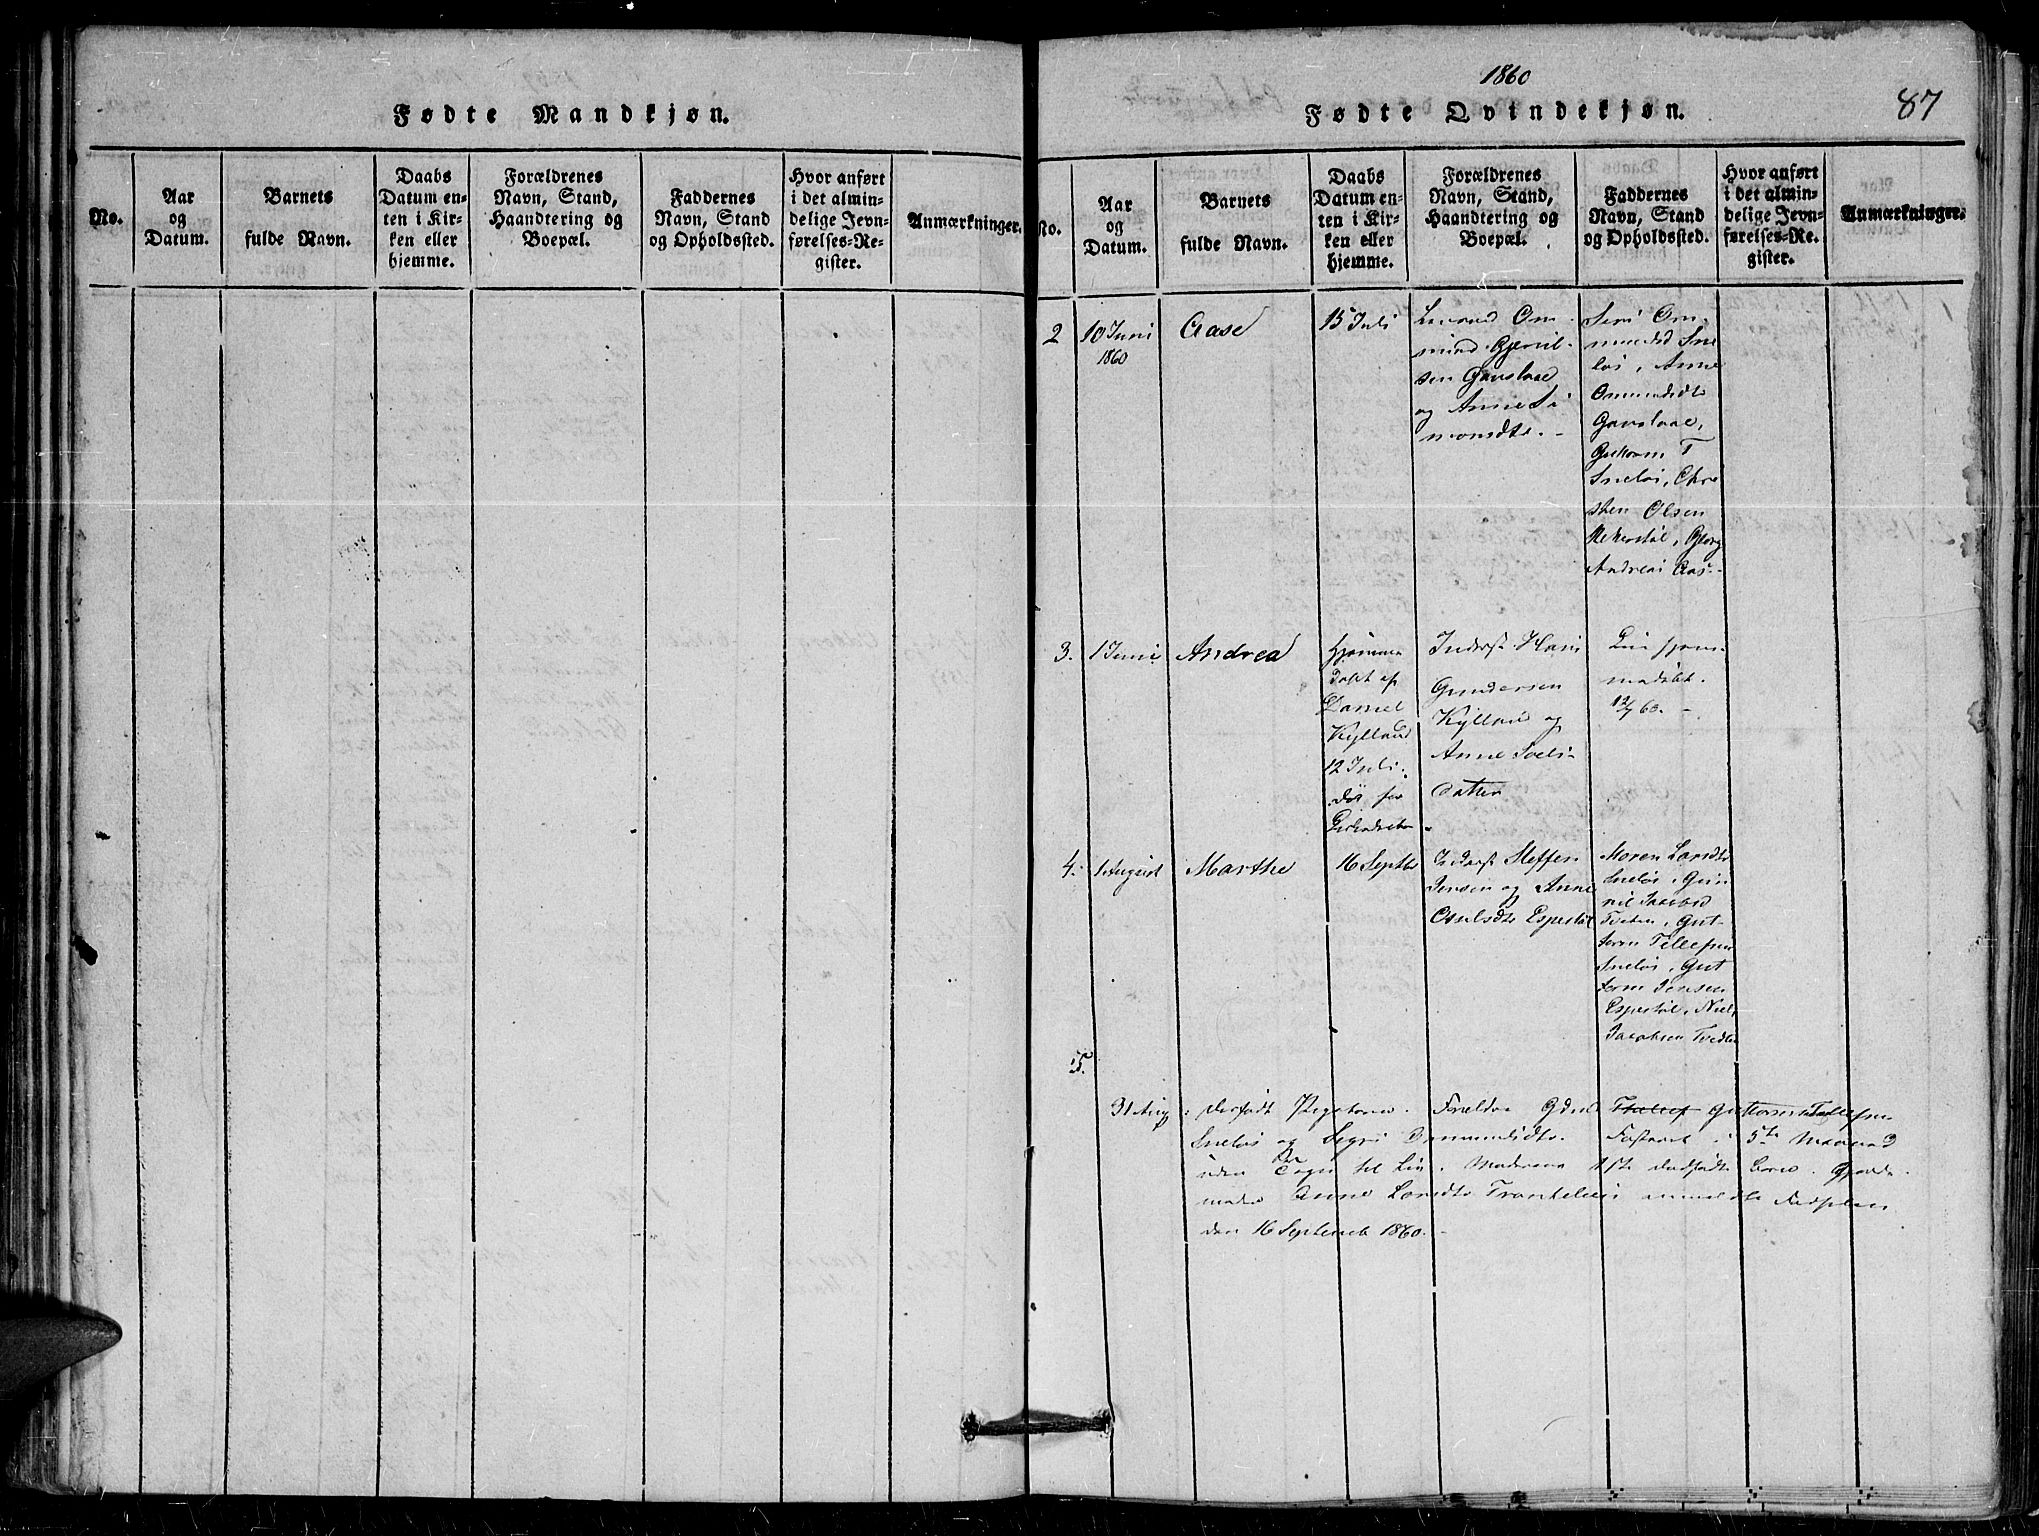 Fødte Mandkjøn.
No.
Aar
og
Datum.
Barnets
fulde Navn.
Daabs
Datum en-
ten i Kir-
ken eller
hjemme.
Forældrenes
Navn, Stand,
Haandtering og
Boepæl.
Faddernes
Navn, Stand
og Opholdssted.
Hvor anført
i det almin-
delige Jevn-
førelses-Re-
gister.
Anmærkninger.
1860
Fødte Qvindekjøn.
87
No.
Aar
og
Datum.
Barnets
fulde Navn.
Daabs
Datum en-
ten i Kir-
ken eller
hjemme.
Forældrenes
Navn, Stand,
Haandtering og
Boepæl.
Faddernes
Navn, Stand
og Opholdssted.
Hvor anført
i det almin-
delige Jevn-
førelses-Re-
gister.
Anmærkninger.
2
10 Juni
1860
Aase
15 Juli
Om-
mund
sen Gauslaae
og Anne Si
monsdtr. -
Siri Om-
mundsd Sne
løs, Anne
Ommundsdtr
Gauslaae,
Guttorm T
Sneløs, Chri
sten Olsen
Georg
Andreas Aas. -
3.
1 Juni
Andrea
Hjemme
døbt af
Daniel
Kylland
12 Juli.
død før
Inderst Hans
Gundersen
Kylland og
Anne
datter
Liv
12/7 60. -
4.
1 August
Marthe
16 Septbr
Inderst Steffen
Jensen og Anne
Espestøl
Maren Larsdtr
Sneløs, Gun
nil Jacobsd
Tveten, Gut-
torm Tellefsen
Sneløs, Gut
torm Jensen
Espestøl, Niels
Jacobsen Tvedten
5.
31 Aug
dødfødt Pigebarn. Forældre Gdmd Guttorm Tellefsen
Sneløs og Segri Ommundsdtr. Fosteret i 5te Maaned
uden Tegn til Liv. Moderens 1ste dødfødte Barn. Gjorde-
moder Anne Larsdtr anmeldte Fødselen
den 16 Septemb 1860. -